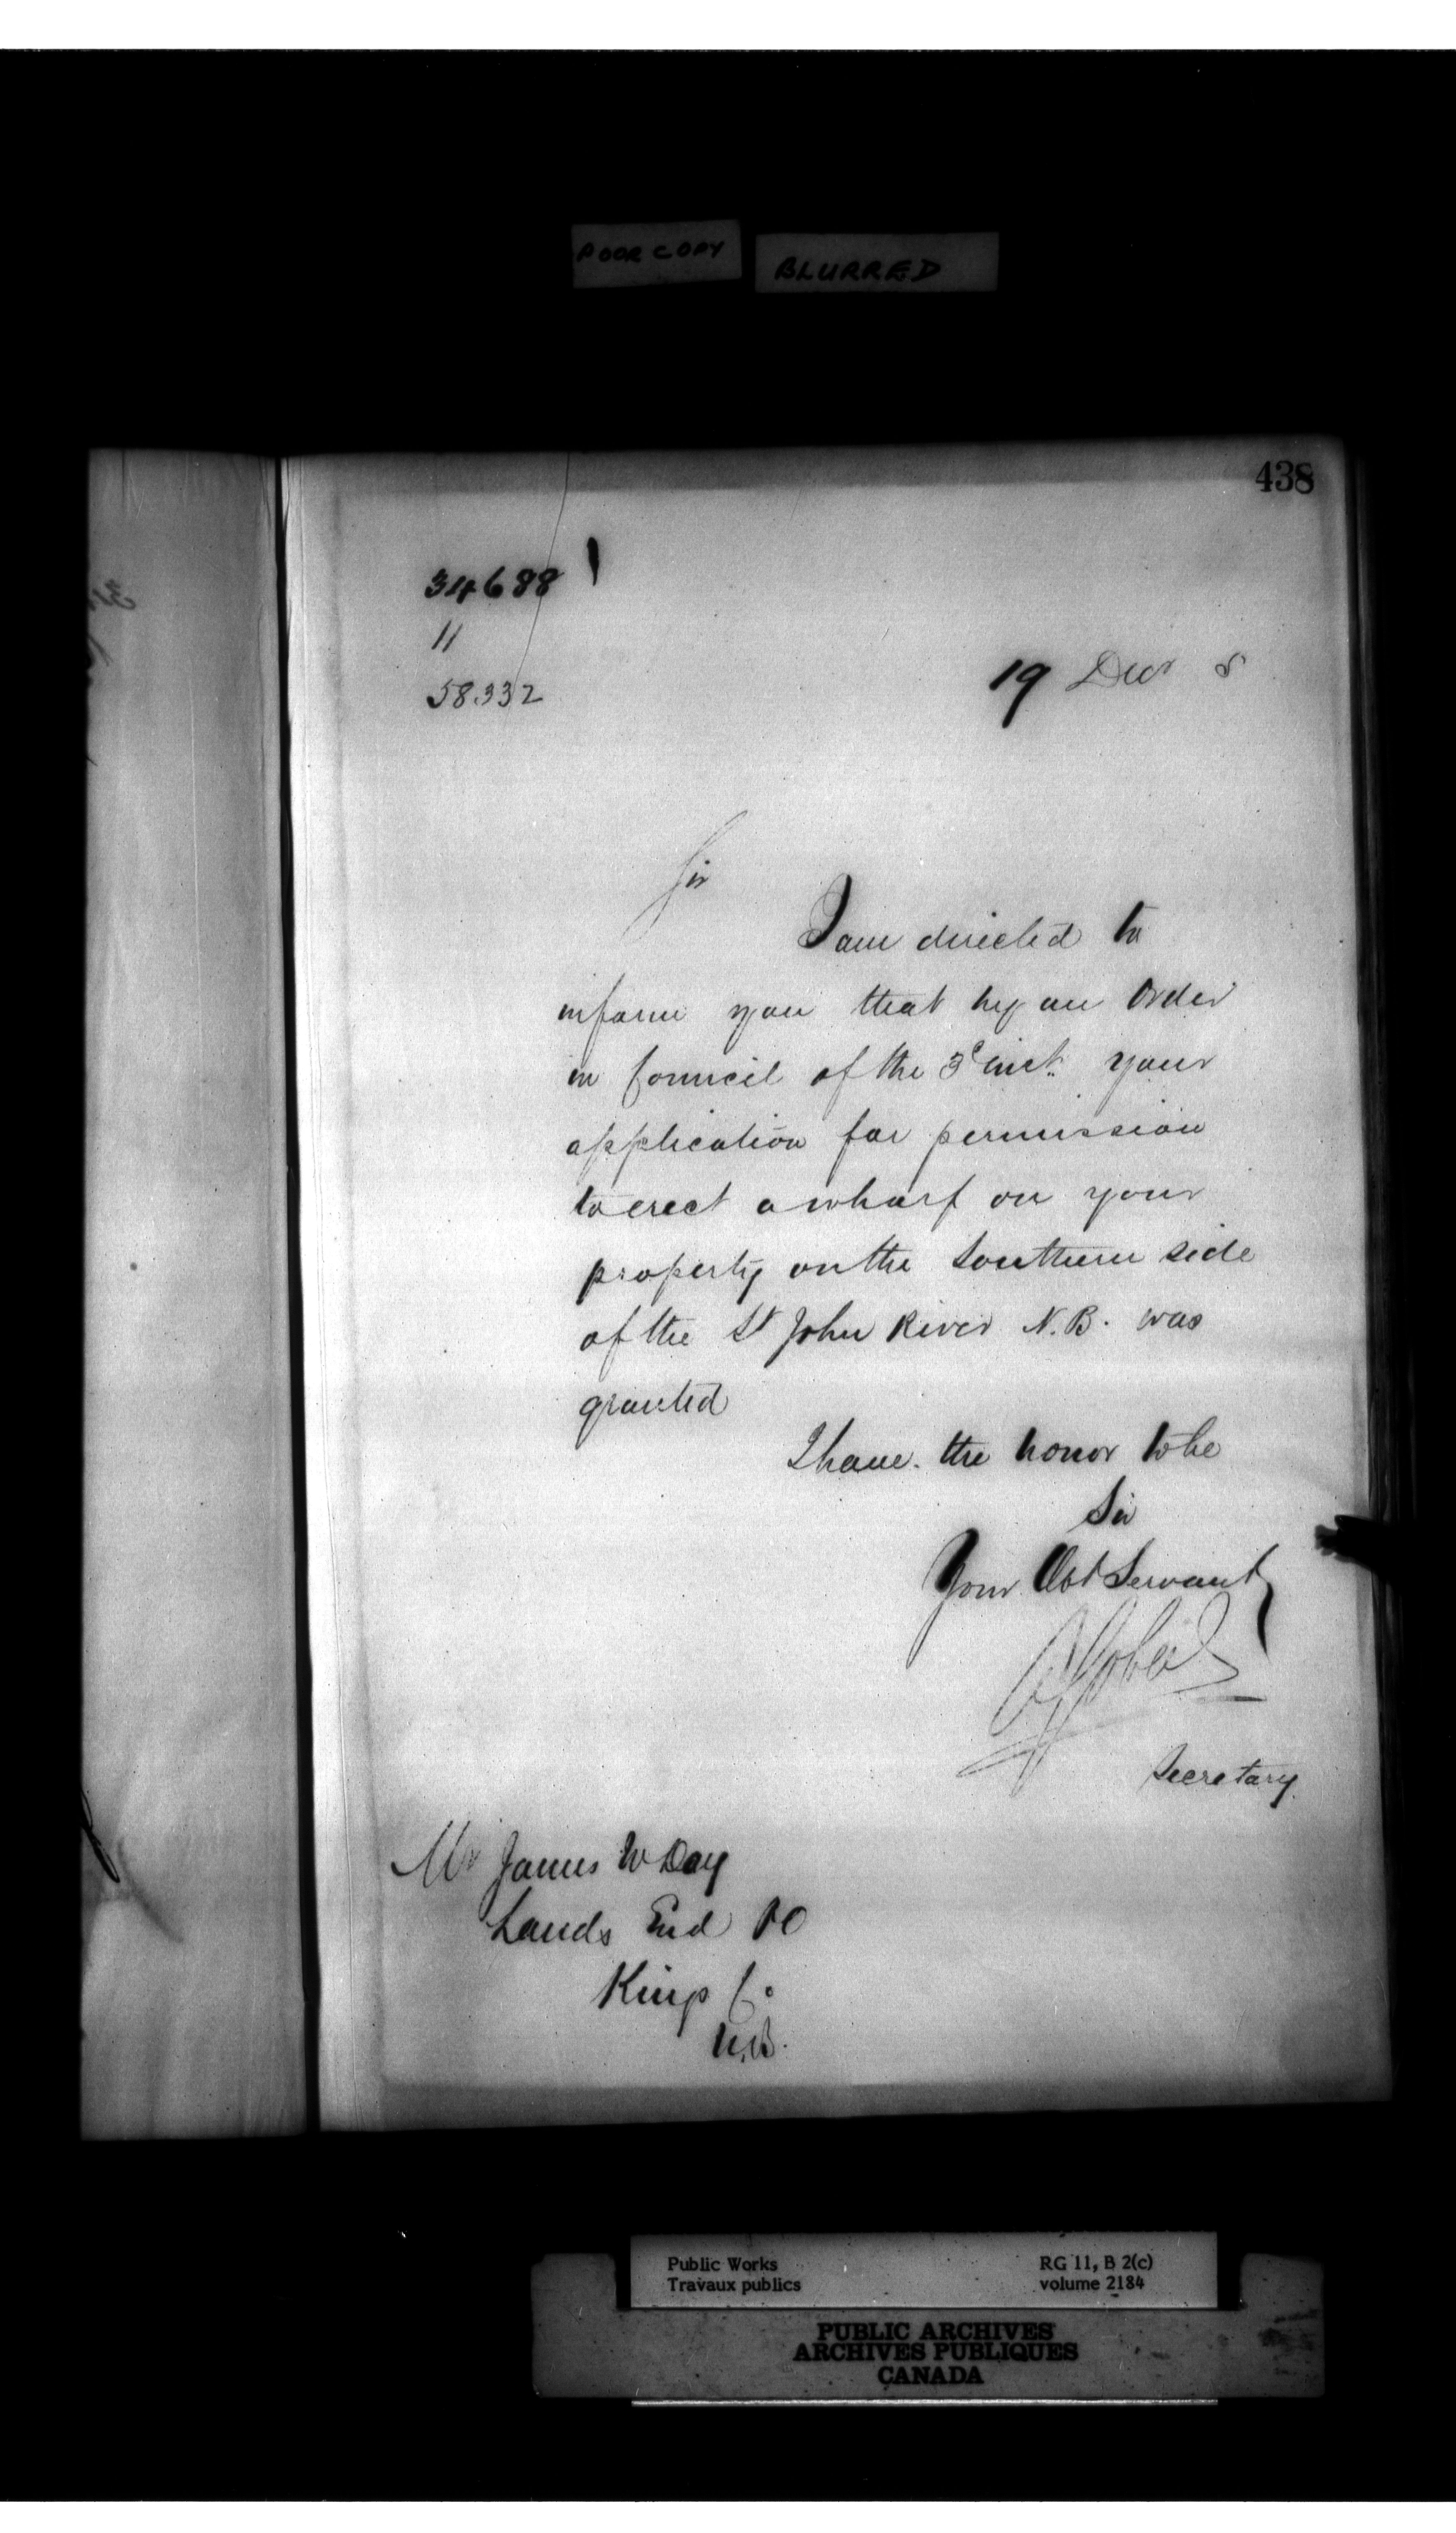 POOR COPY BLURRED
438
34688
11
58332
19 Decr 8
Sir
I am directed to
inform you that by an Order
in Council of the 3d inst. your
application for permission
to erect a wharf on your
property on the Southern side
of the St John River N.B. was
granted
I have the honor to be
Sir
Your Obt Servant
A Gobeil
Secretary.
Mr James W Day
Lands End PO
Kings Co
N.B.
Public Works RG 11, B 2(c)
Travaux publics volume 2184
PUBLIC ARCHIVES
ARCHIVES PUBLIQUES
CANADA